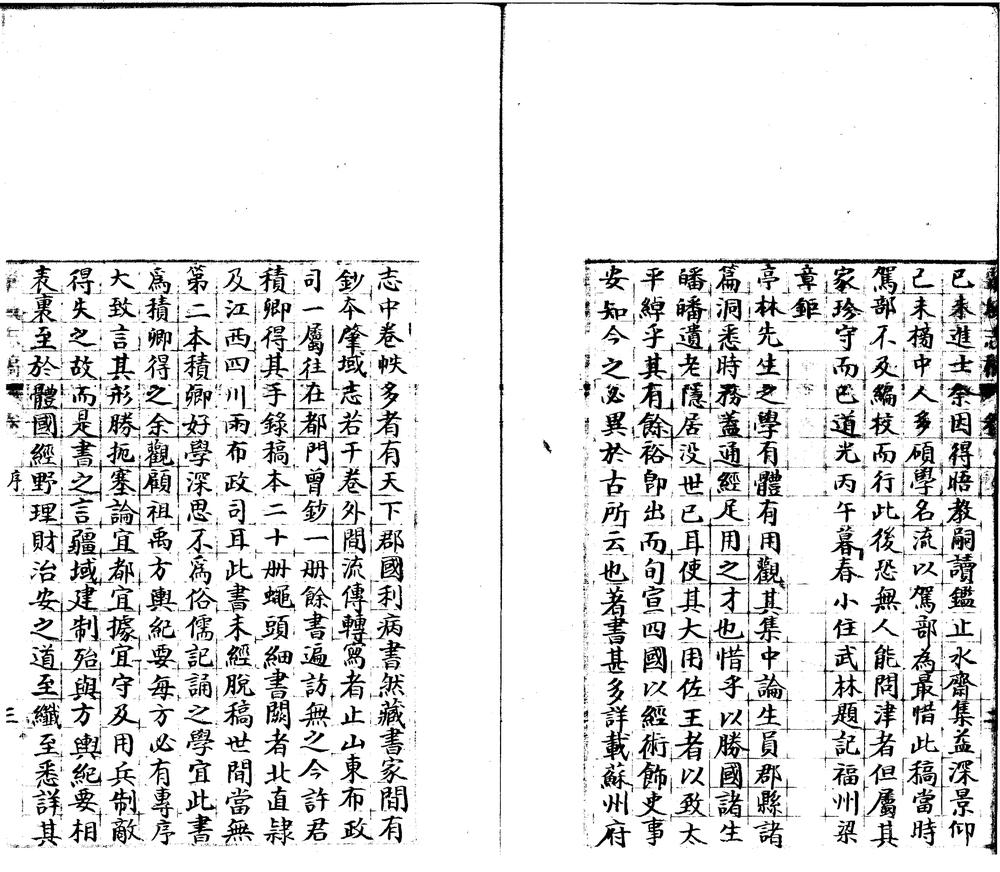 已未進士祭因得晤教嗣讀鑑止水齋集益深景仰
己未楊中人多碩學名流以駕部為最惜此稿當時
駕部不及編校而行此後恐無人能問津者但屬其
家珍守而已道光丙午暮春小住武林題記福州梁
章鉅
亭林先生之學有體有用觀其集中論生員郡縣諸
篇洞悉時務蓋通經足用之才也惜乎以勝國諸生
皤皤遺老隱居没世已耳使其大用佐王者以致太
平綽乎其有餘裕卽出而旬宣四國以經術飾吏事
安知今之必異於古所云也著書甚多詳載蘇州府
志中卷帙多者有天下郡國利病書然藏書家間有
鈔夲肇域志若干卷外間流傳轉寫者止山東布政
司一屬往在都門曾鈔一册餘書遍訪無之今許君
積卿得其手錄稿本二十册蠅頭細書闕者北直隸
及江西四川兩布政司耳此書未經脫稿世間當無
第二本積卿好學深思不爲俗儒記誦之學宜此書
爲積卿得之余觀顧祖禹方輿紀要每方必有專序
大致言其形勝扼塞論宜都宜據宜守及用兵制敵
得失之故而是書之言疆域建制殆與方輿紀要相
表裏至於體國經野理財治安之道至纖至悉詳其
序
三